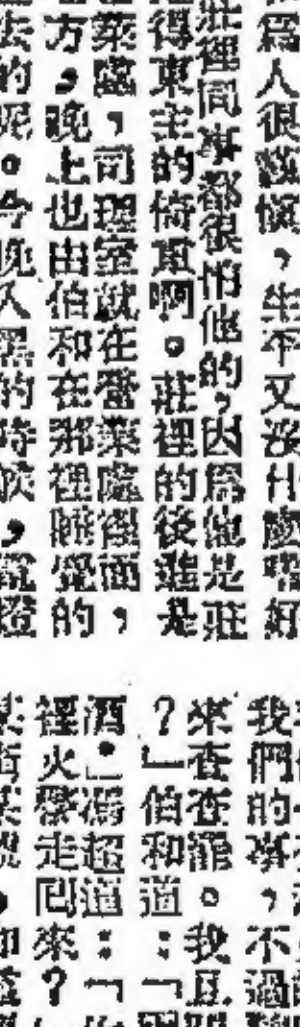 為人很謹慎,生平又沒什麼嗜好
莊裡同事都很怕他的,因為他是莊
得東主的倚重啊。莊裡的後進是
業處,司理室就在營業處裡面,
方,晚上也由伯和在那裡睡覺的
去的呢。今晚入黑的時候,電燈
我們的事,不過
來查查罷。我且
?」伯和道:「
酒。」馮超道:「
裡火夥走回來?